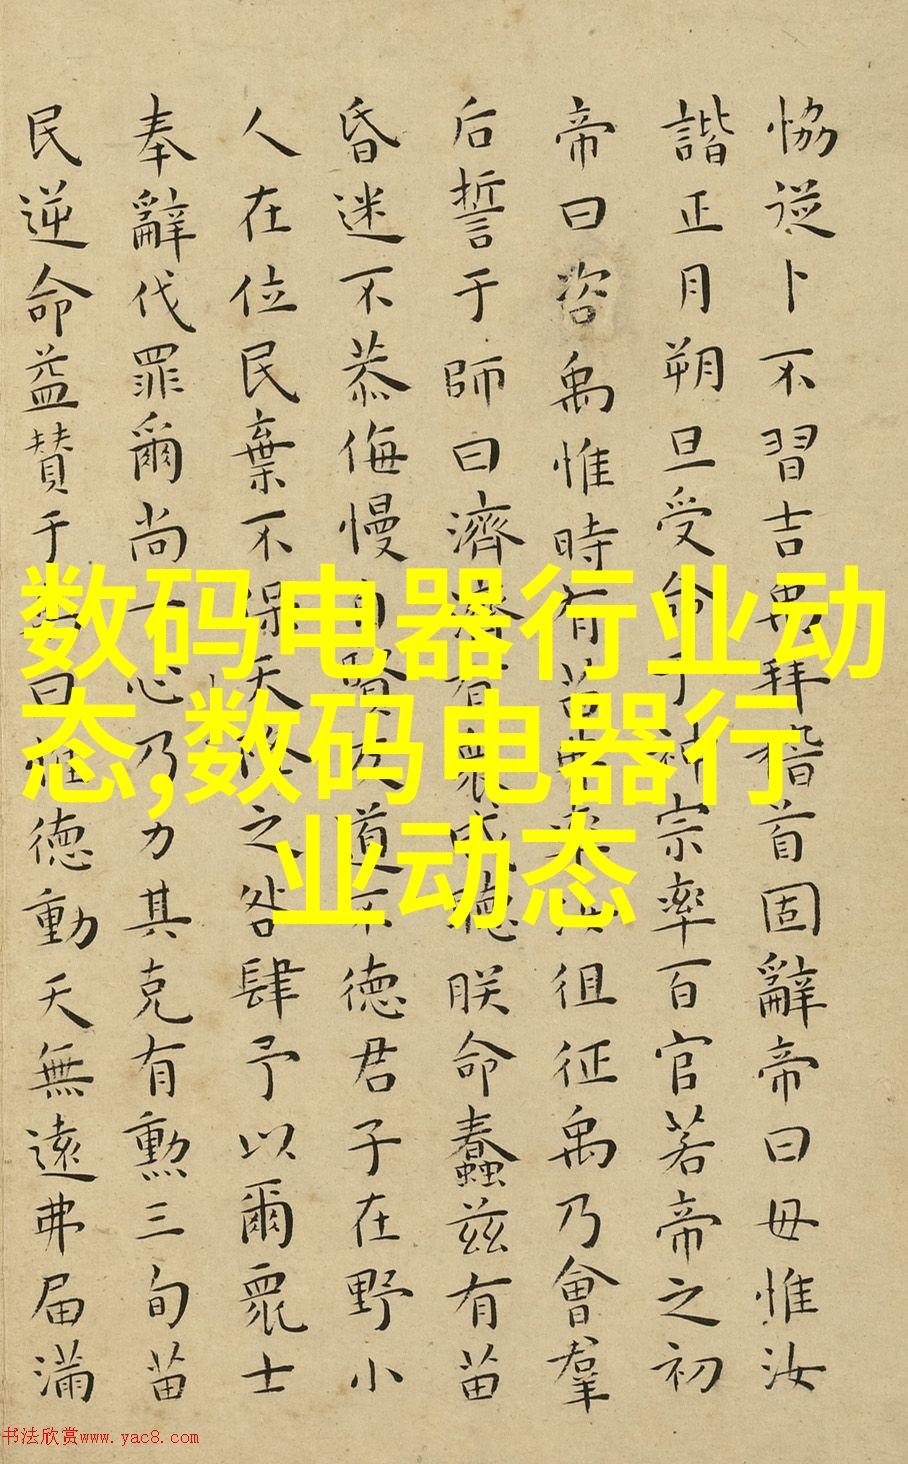 恊從卜不習吉禹拜稽首固辭帝曰毋惟汝
諧正月朔旦受命于神宗率百官若帝之初
帝曰咨禹惟時有苗弗率汝徂征禹乃會羣
后誓于師曰濟濟有衆咸聽朕命蠢茲有苗
昏迷不恭侮慢自賢反道不德君子在野小
人在位民棄不保天降之咎肆予以爾衆士
奉辭伐罪爾尚一心乃力其克有勲三旬苗
民逆命益贊于禹曰惟德動天無遠弗届滿
数码电器行业动
态,数码电器行
业动态
书法欣赏www.yac8.com